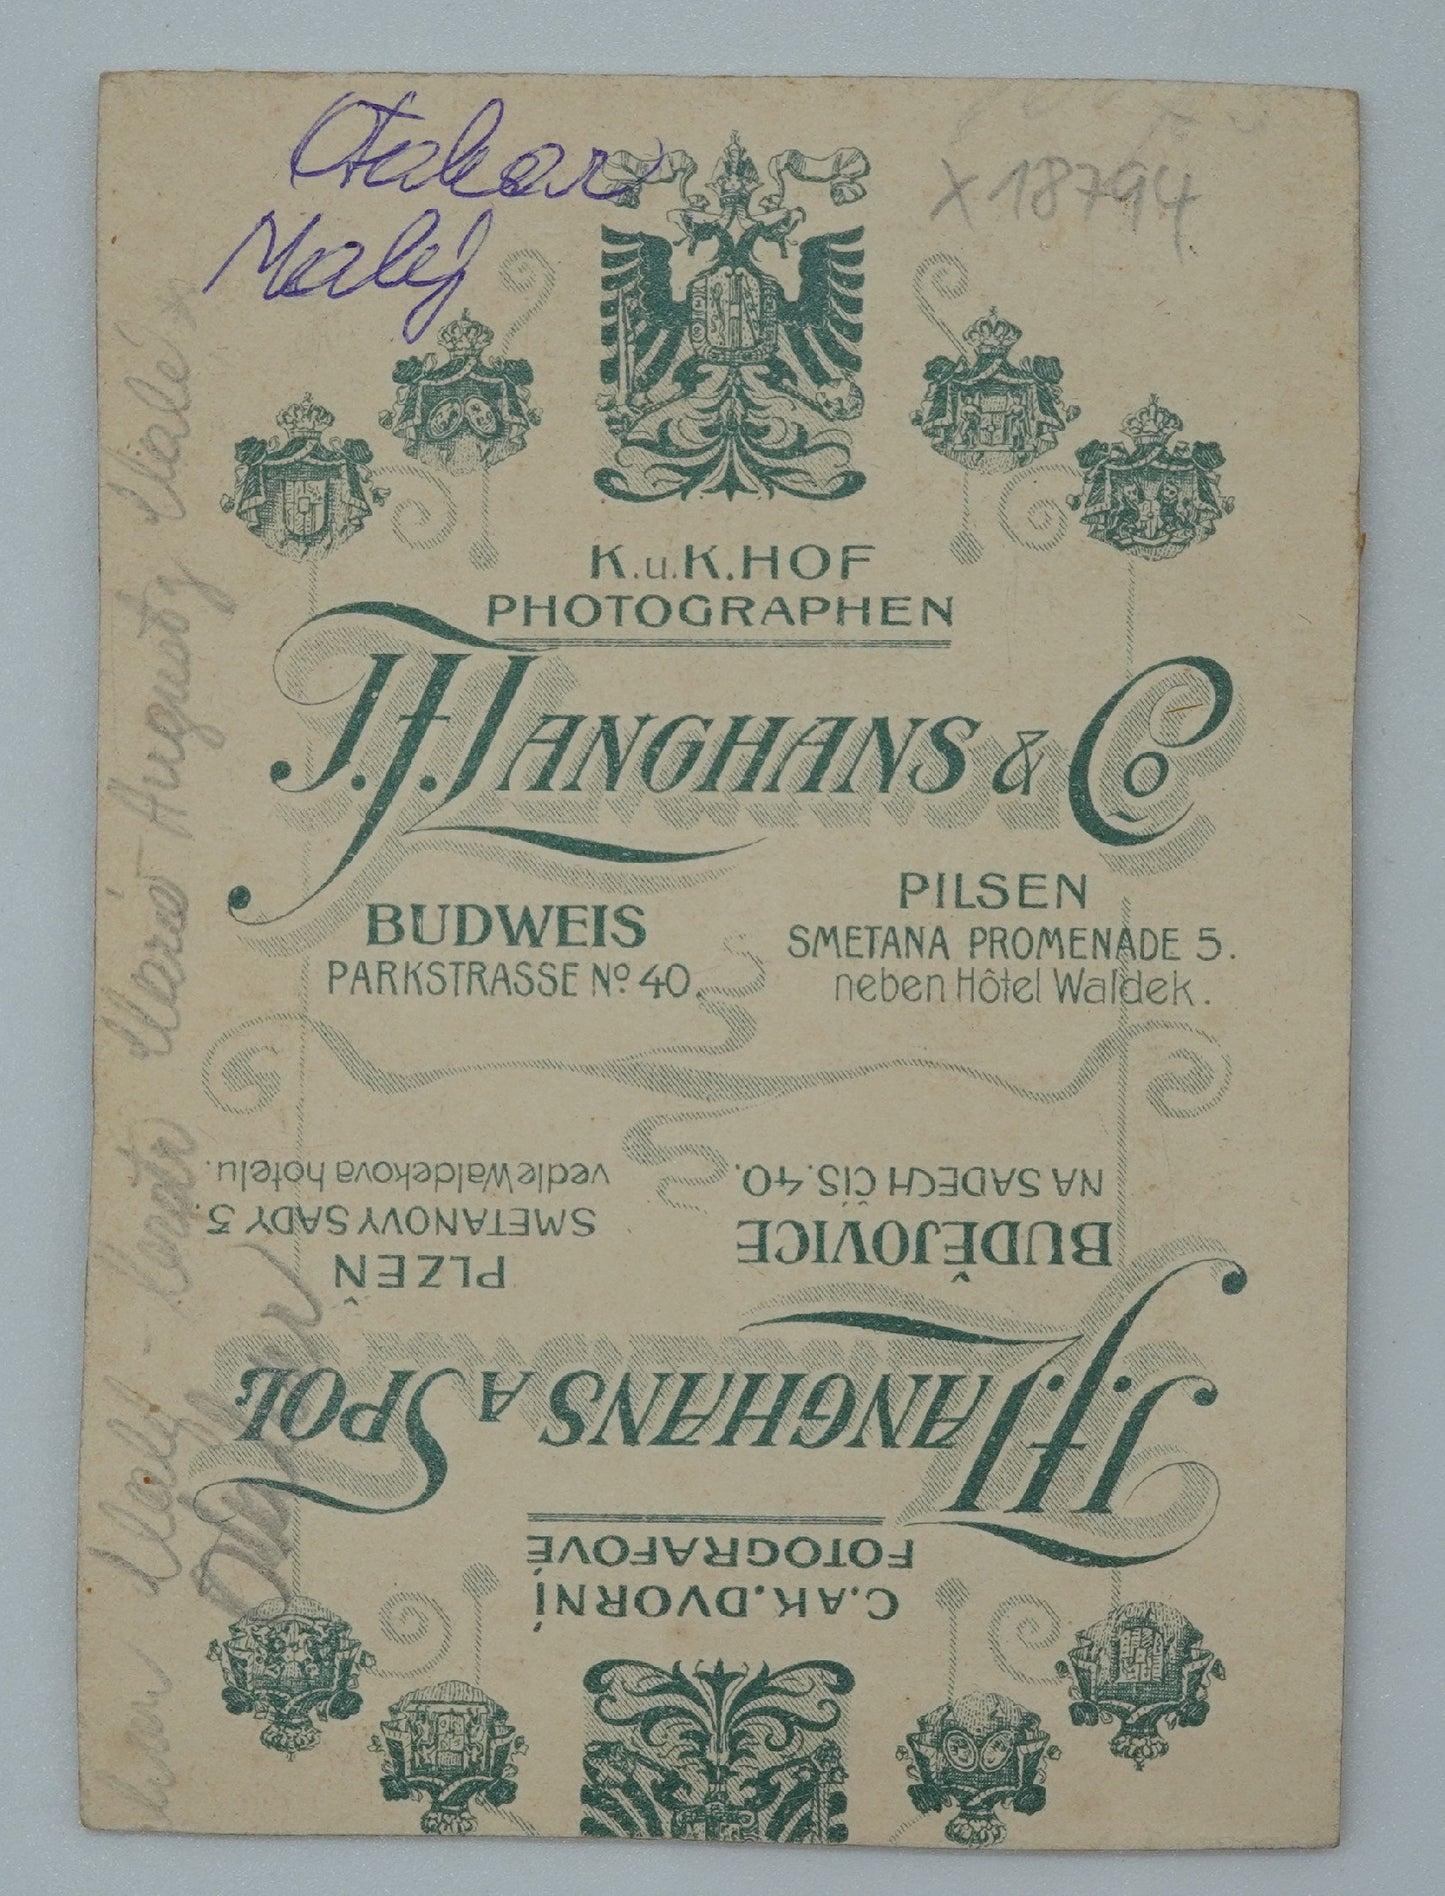 Otakar
Malý
X 18794
K.u.K. HOF
PHOTOGRAPHEN
J.F. LANGHANS & Co
BUDWEIS
PARKSTRASSE No 40.
PILSEN
SMETANA PROMENADE 5.
neben Hôtel Waldek.
C. A K. DVORNÍ
FOTOGRAFOVÉ
J.F. LANGHANS A SPOL.
BUDĚJOVICE
NA SADECH ČÍS. 40.
PLZEŇ
SMETANOVY SADY 5.
vedle Waldekova hotelu.
Malý - bratr Marie Augusty Malé